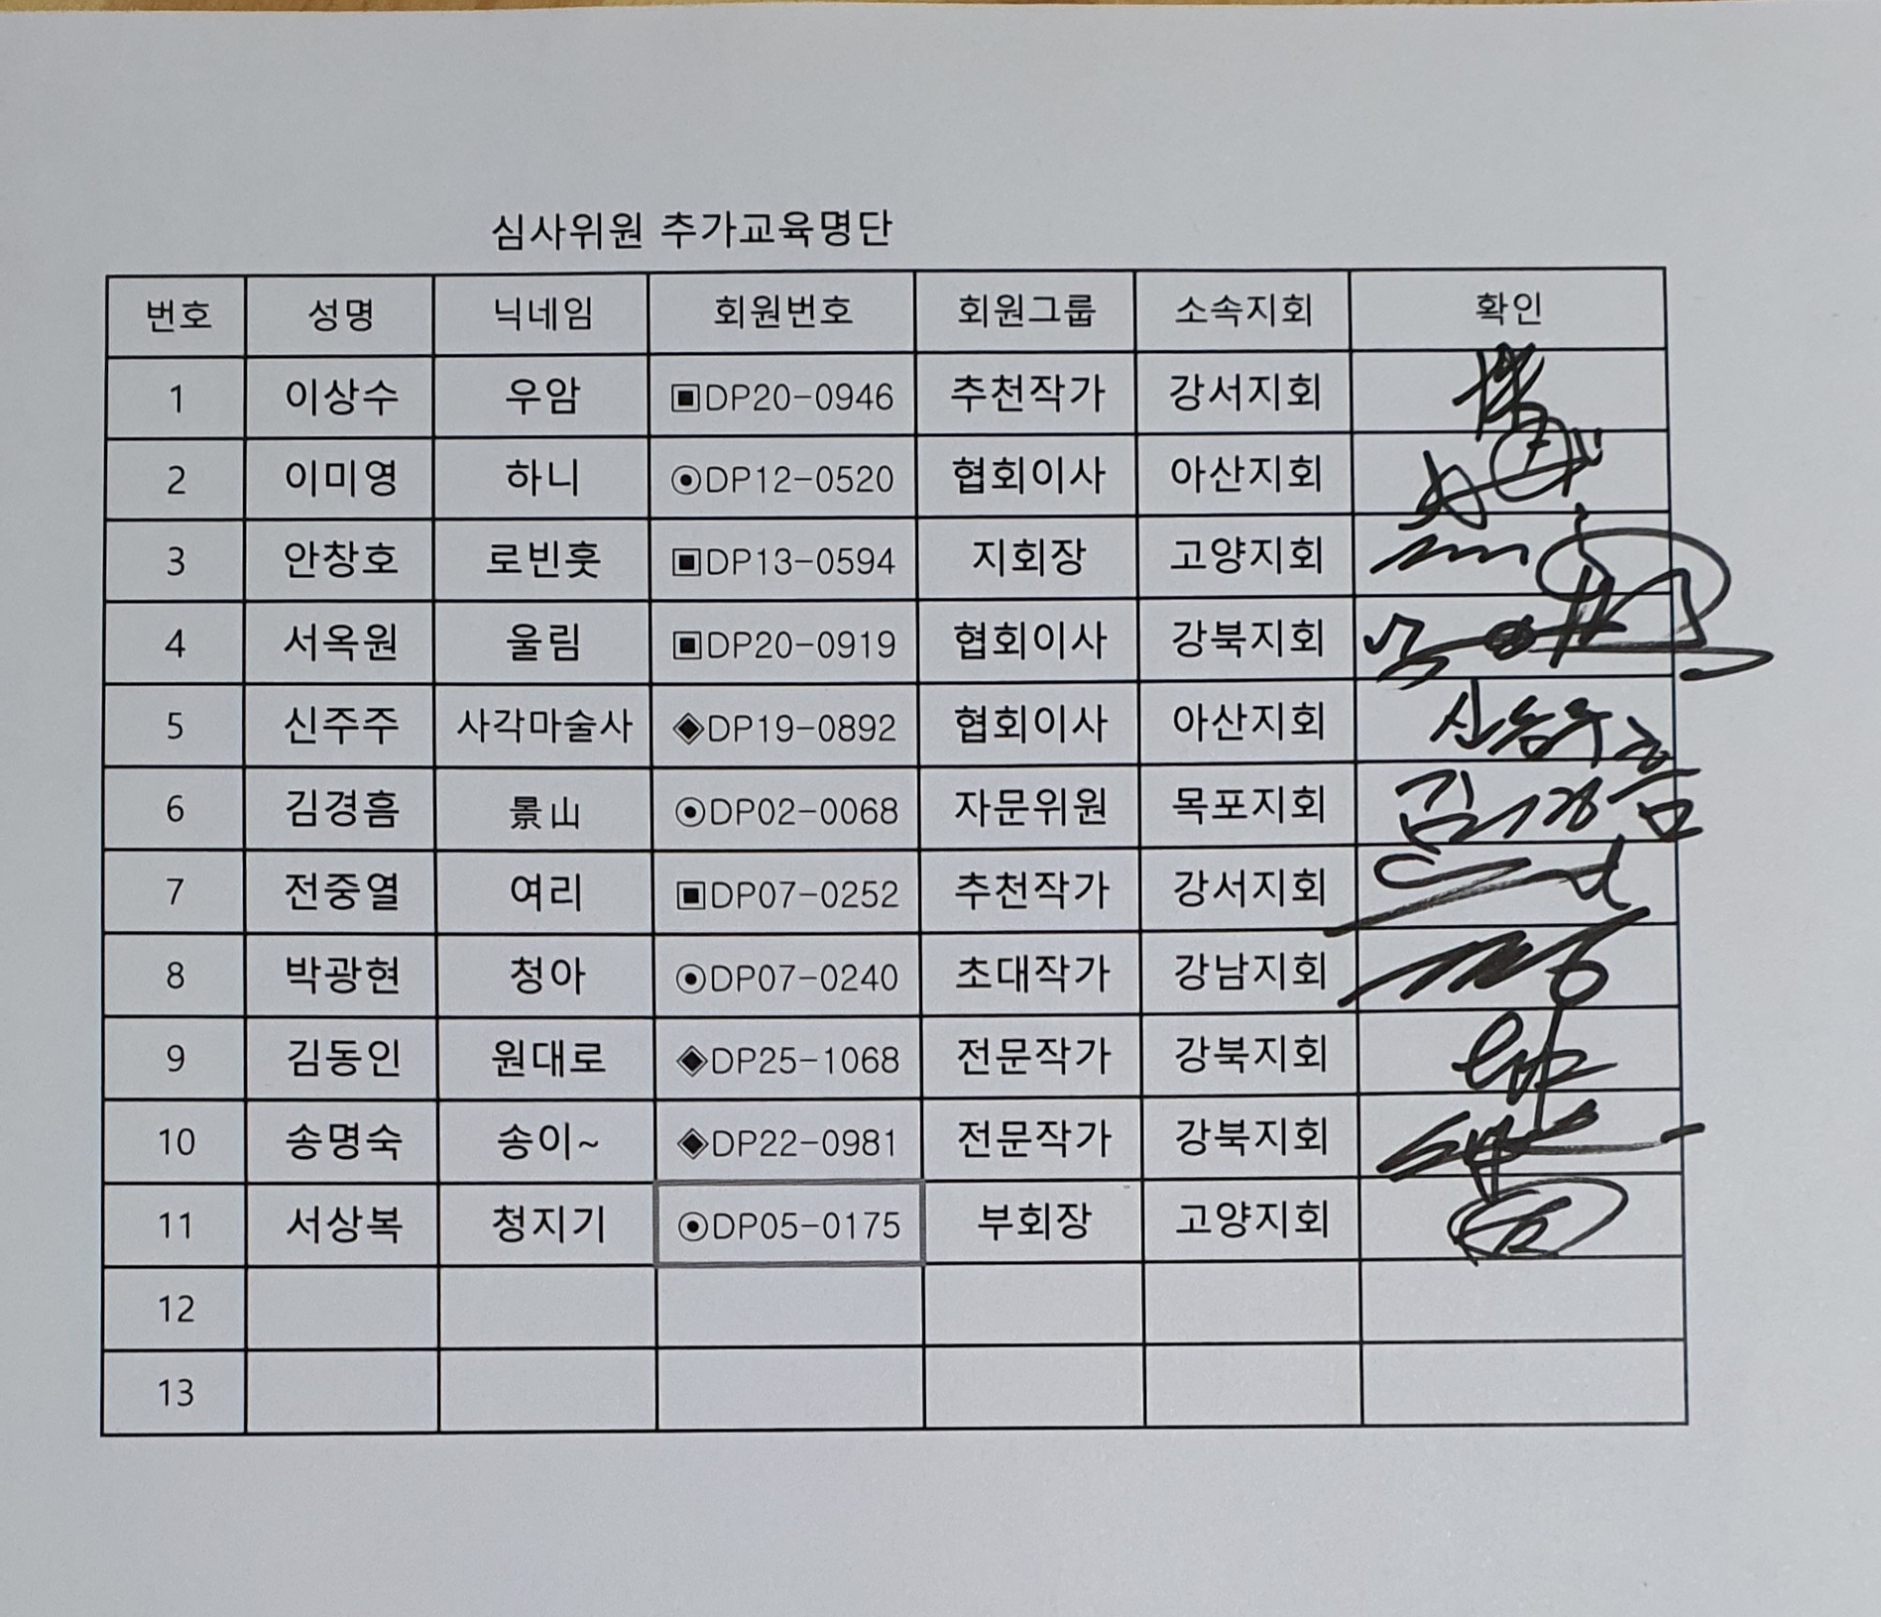 심사위원 추가교육명단
번호 성명 닉네임 회원번호 회원그룹 소속지회 확인
1 이상수 우암 ▣DP20-0946 추천작가 강서지회
2 이미영 하니 ⊙DP12-0520 협회이사 아산지회
3 안창호 로빈훗 ▣DP13-0594 지회장 고양지회
4 서옥원 울림 ▣DP20-0919 협회이사 강북지회
5 신주주 사각마술사 ◈DP19-0892 협회이사 아산지회
6 김경흠 景山 ⊙DP02-0068 자문위원 목포지회 김경흠
7 전중열 여리 ▣DP07-0252 추천작가 강서지회
8 박광현 청아 ⊙DP07-0240 초대작가 강남지회
9 김동인 원대로 ◈DP25-1068 전문작가 강북지회
10 송명숙 송이~ ◈DP22-0981 전문작가 강북지회
11 서상복 청지기 ⊙DP05-0175 부회장 고양지회
12
13